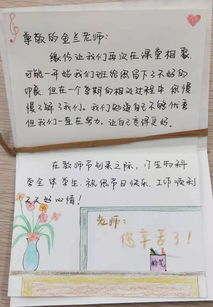 尊敬的金兰老师:
缘份让我们再次在课堂相聚,
可能一开始我们班给您留下了不好的
印象,但在一个学期的相处过程中您慢慢
了解了我们。我们知道自己不够优秀
但我们一直在努力,让自己变得更好。
在教师节到来之际,
全体学生,祝您节日快乐、工作顺利
天天好心情!
老师:
您辛苦了!